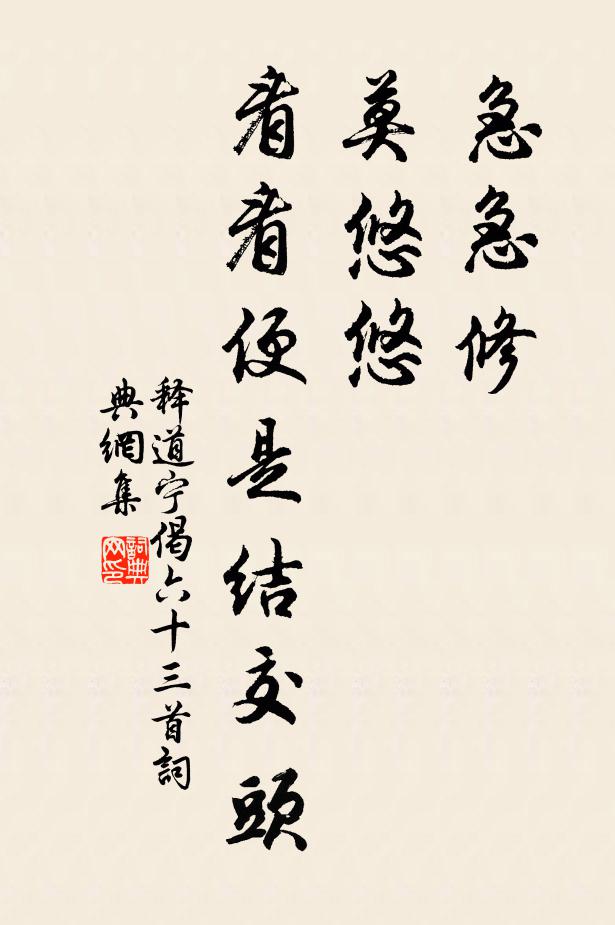 急急修
莫悠悠
看看便是结交頭
释道宁偈六十三首詞
典網集
詞典
网印